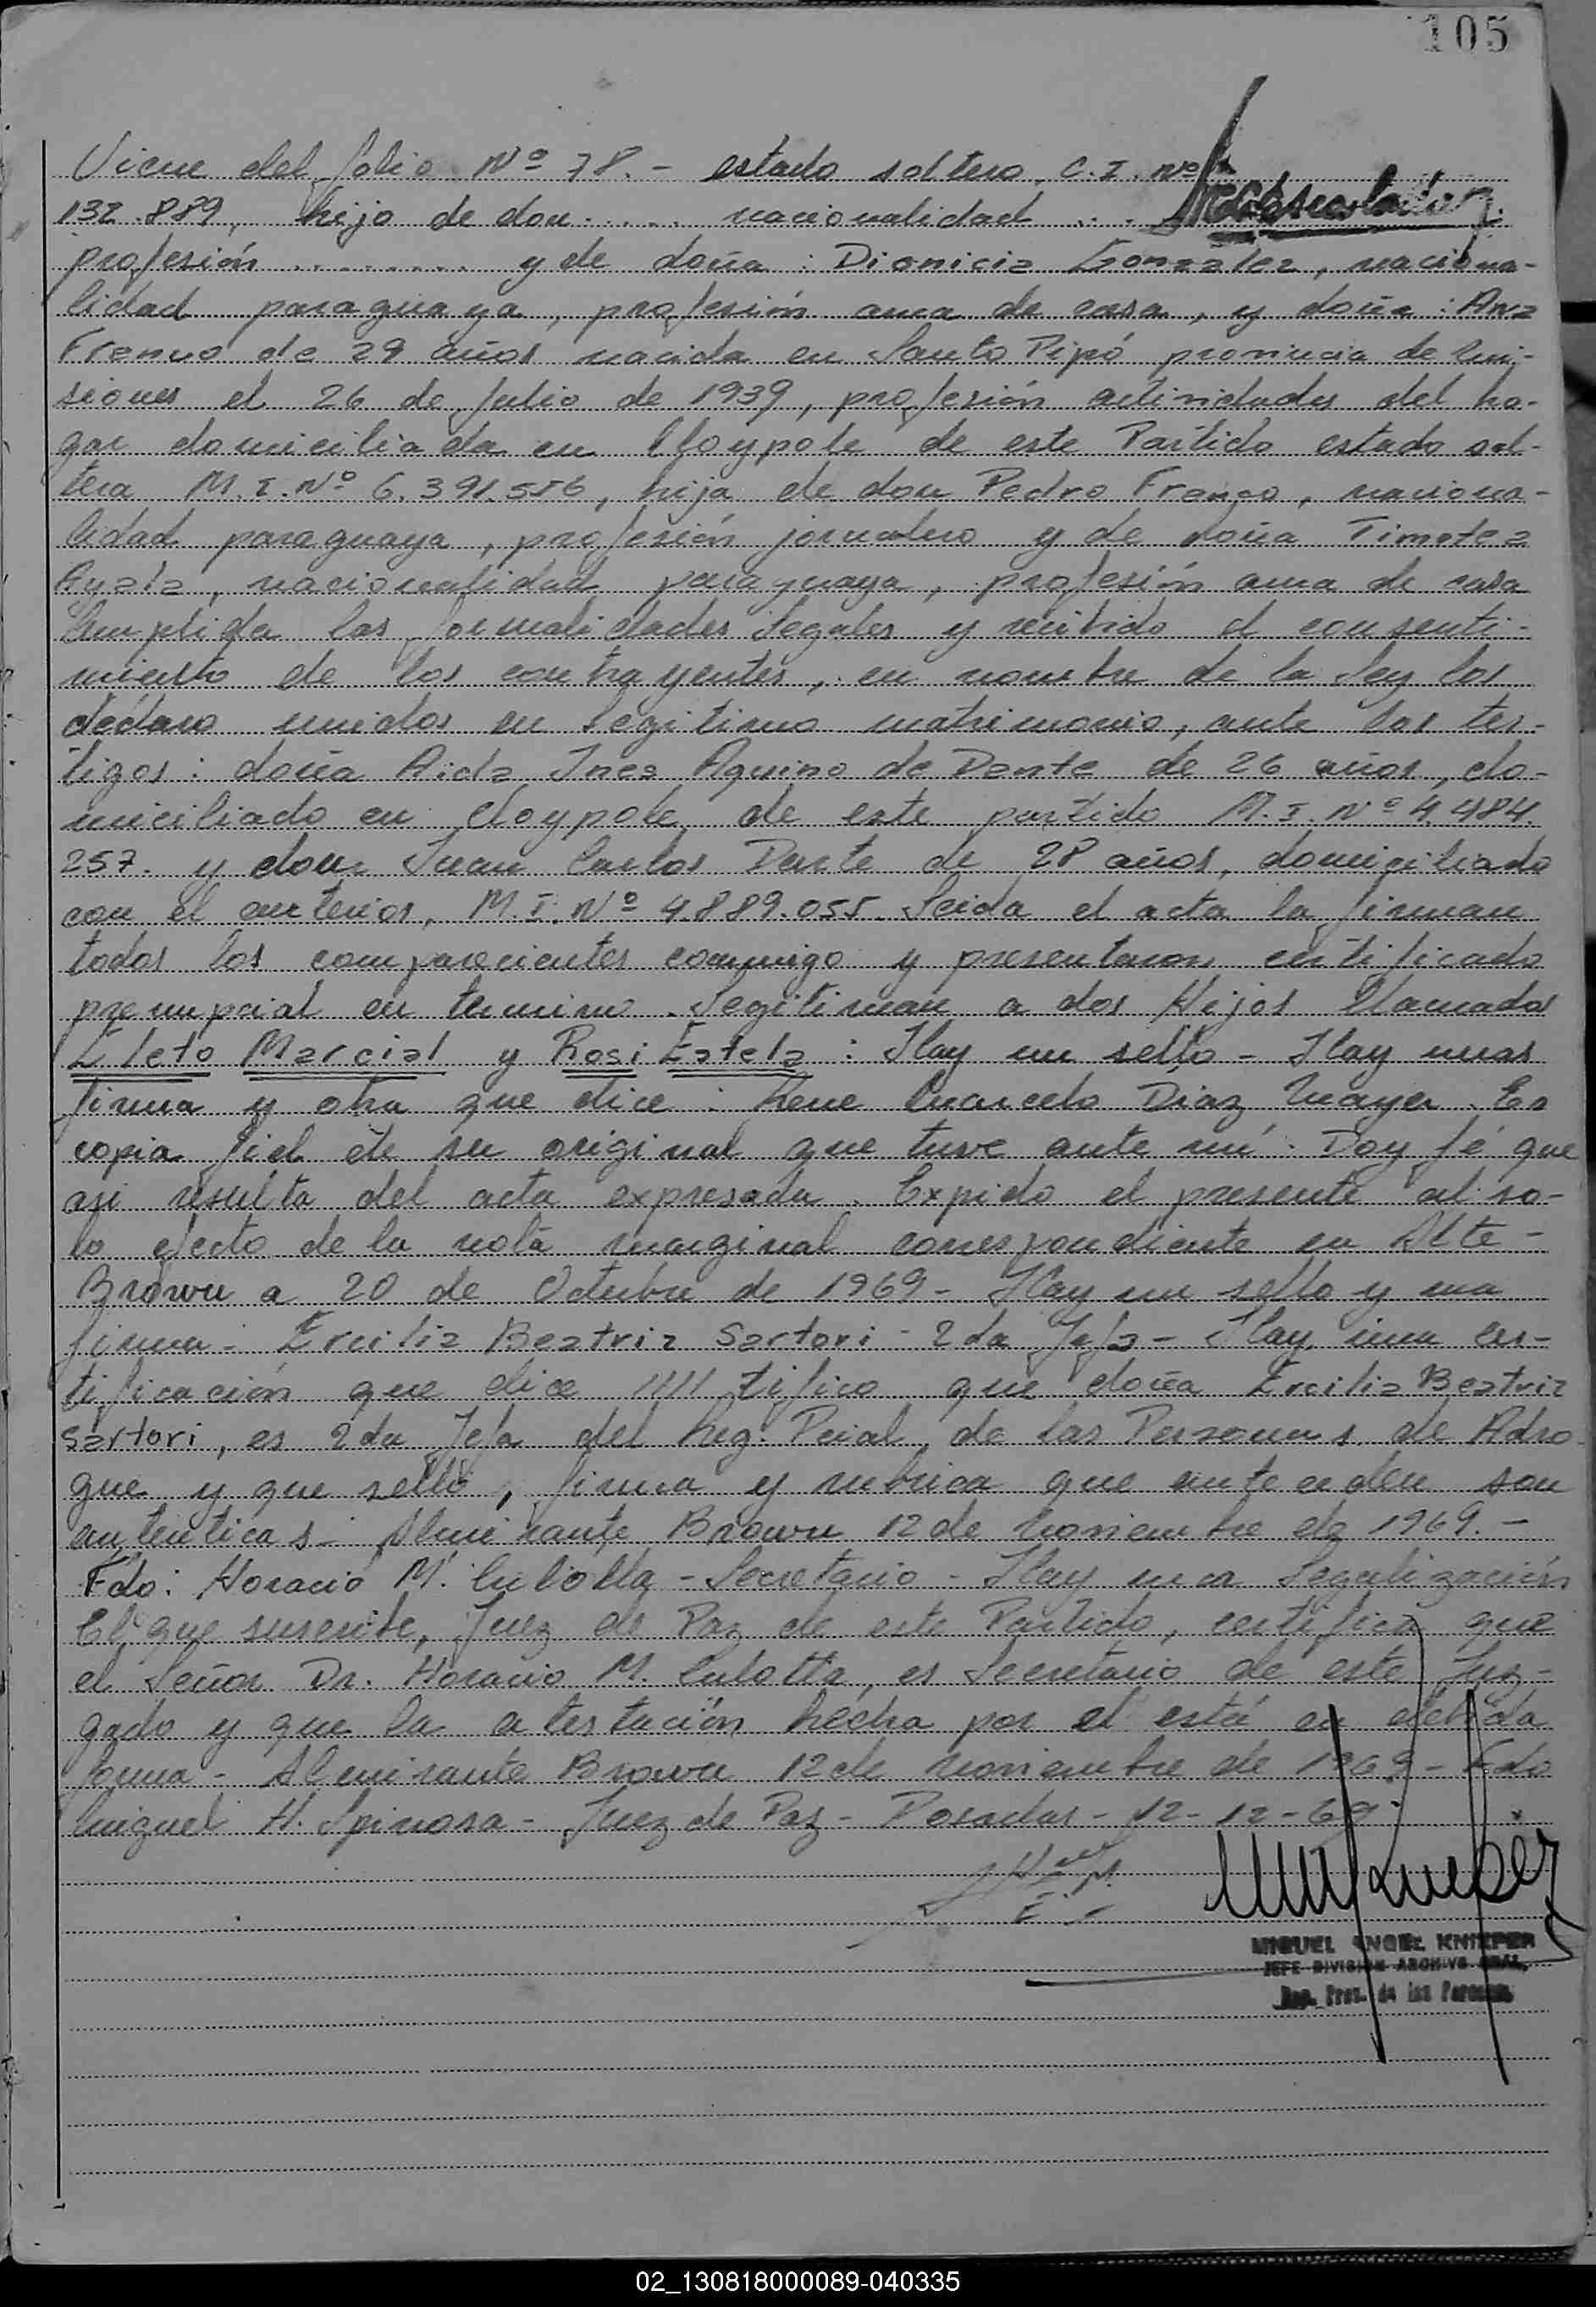 105
Viene del folio Nº 78.- estado soltero, C.I. Nº
132.889, hijo de don ..... nacionalidad ...
profesión ......... y de doña: Dionicia Gonzalez, naciona-
lidad paraguaya, profesión ama de casa, y doña: Ana
Franco de 29 años nacida en Santo Pipó provincia de Mi-
siones el 26 de Julio de 1939, profesión actividades del ho-
gar domiciliada en Claypole de este Partido estado sol-
tera M.I. Nº 6.391.556, hija de don Pedro Franco, naciona-
lidad paraguaya, profesión jornalero y de doña Timotea
Ayala, nacionalidad paraguaya, profesión ama de casa
Cumplida las formalidades Legales y recibido el consenti-
miento de los contrayentes, en nombre de la Ley los
declaro unidos en Legitimo matrimonio, ante los tes-
tigos: doña Aida Ines Aquino de Dante de 26 años, do-
miciliado en Cloypole de este partido M.I. Nº 4.484.
257. y don Juan Carlos Dante de 28 años, domiciliado
con el anterior, M.I. Nº 4889.055. Leida el acta la firman
todos los comparecientes conmigo y presentaron certificado
prenupcial en termino. Legitiman a dos Hijos llamados
Eleto Marcial y Rosi Estela: Hay un sello - Hay unas
firma y otra que dice: Rene Marcelo Diaz Mayer. Es
copia fiel de su original que tuve ante mí. Doy fé que
asi resulta del acta expresada. Expido el presente al so-
lo efecto de la nota marginal correspondiente en Alte-
Brown a 20 de Octubre de 1969 - Hay un sello y una
firma - Ercilia Beatriz Sartori - 2da Jefa - Hay una cer-
tificación que dice //// tifico que doña Ercilia Beatriz
Sartori, es 2da Jefa del Reg. Pcial de las Personas de Adro
gue y que sello, firma y rubrica que anteceden son
autenticas - Almirante Brown 12 de Noviembre de 1969.-
Fdo: Horacio M. Culotta - Secretario - Hay una Legalización
El que suscribe, Juez de Paz de este Partido, certifica que
el Señor Dr. Horacio M. Culotta, es Secretario de este Juz-
gado y que la atestación hecha por el está en debida
forma - Almirante Brown 12 de Noviembre de 1969 - Fdo
Miguel H. Spinosa - Juez de Paz - Posadas - 12-12-69.
MIGUEL ANGEL KNIEPER
JEFE DIVISION ARCHIVO GRAL.
Reg. Prov. de las Personas
02_130818000089-040335